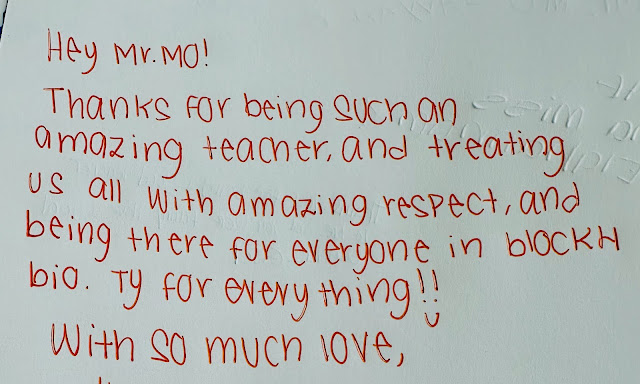 Hey Mr. Mo!
Thanks for being such an
amazing teacher, and treating
us all with amazing respect, and
being there for everyone in block H
bio. Ty for everything!!
With so much love,